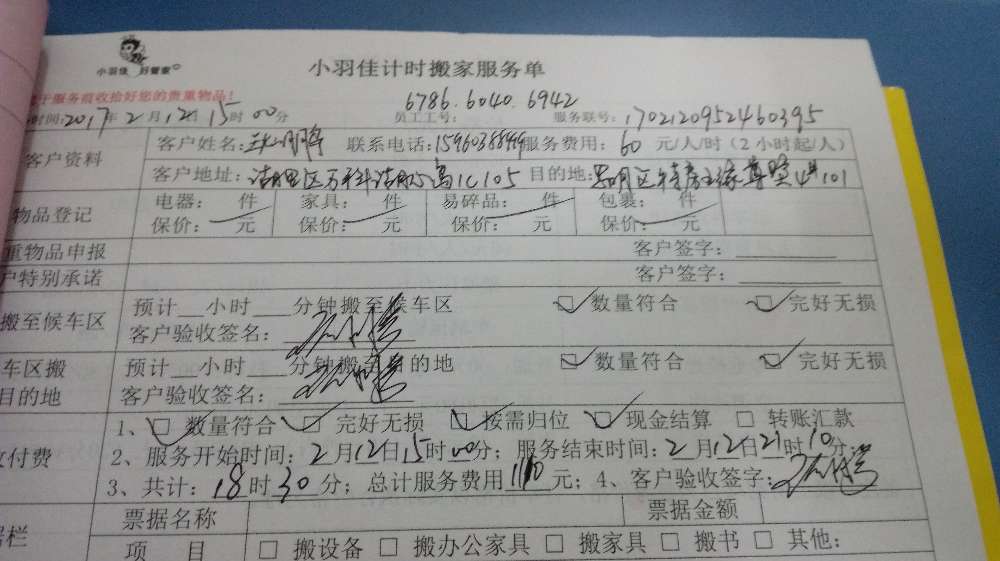 小羽佳 好管家
小羽佳计时搬家服务单
于服务前收拾好您的贵重物品!
6786.6040.6942
时间:2017年2月12日15时00分 员工工号: 服务联号:1702120952460395
客户资料 客户姓名: 联系电话: 服务费用:60元/人/时(2小时起/人)
客户地址: 1C105 目的地: 101
物品登记 电器: 件 家具: 件 易碎品: 件 包裹: 件
保价: 元 保价: 元 保价: 元 保价: 元
重物品申报 客户签字:
户特别承诺 客户签字:
搬至候车区 预计 小时 分钟搬至候车区 数量符合 完好无损
客户验收签名:
车区搬 预计 小时 分钟搬至目的地 数量符合 完好无损
目的地 客户验收签名:
1、 数量符合 完好无损 按需归位 现金结算 转账汇款
付费 2、服务开始时间:2月12日15时00分;服务结束时间:2月12日21时10分
3、共计:18时30分;总计服务费用1110元;4、客户验收签字:
据栏 票据名称 票据金额
项 目 搬设备 搬办公家具 搬家具 搬书 其他: